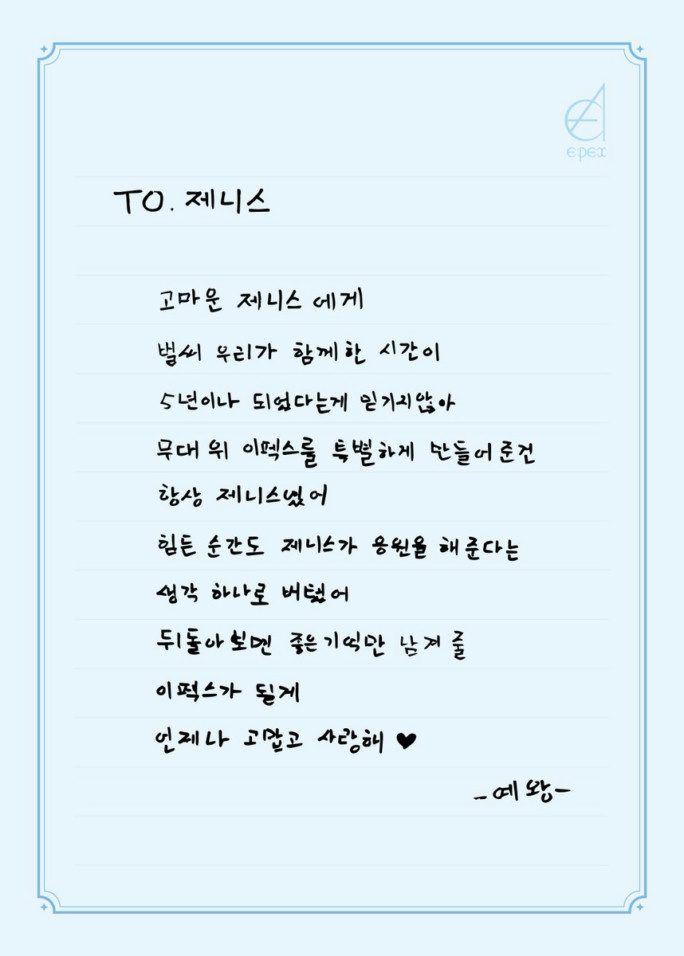 epex
TO. 제니스
고마운 제니스에게
벌써 우리가 함께한 시간이
5년이나 되었다는게 믿기지않아
무대 위 이펙스를 특별하게 만들어준건
항상 제니스였어
힘든 순간도 제니스가 응원을 해준다는
생각 하나로 버텼어
뒤돌아보면 좋은기억만 남겨 줄
이펙스가 될게
언제나 고맙고 사랑해 ♥
-예왕-